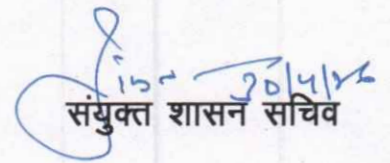 30/4/26
संयुक्त शासन सचिव